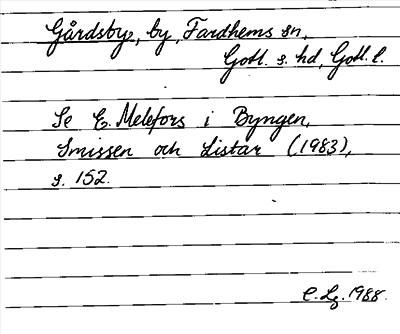 Gårdsby, by, Fardhems sn,
Gotl. s. hd, Gotl. l.
Se E. Melefors i Byngen,
Smissen och Listar (1983),
s. 152.
C. Lg. 1988.